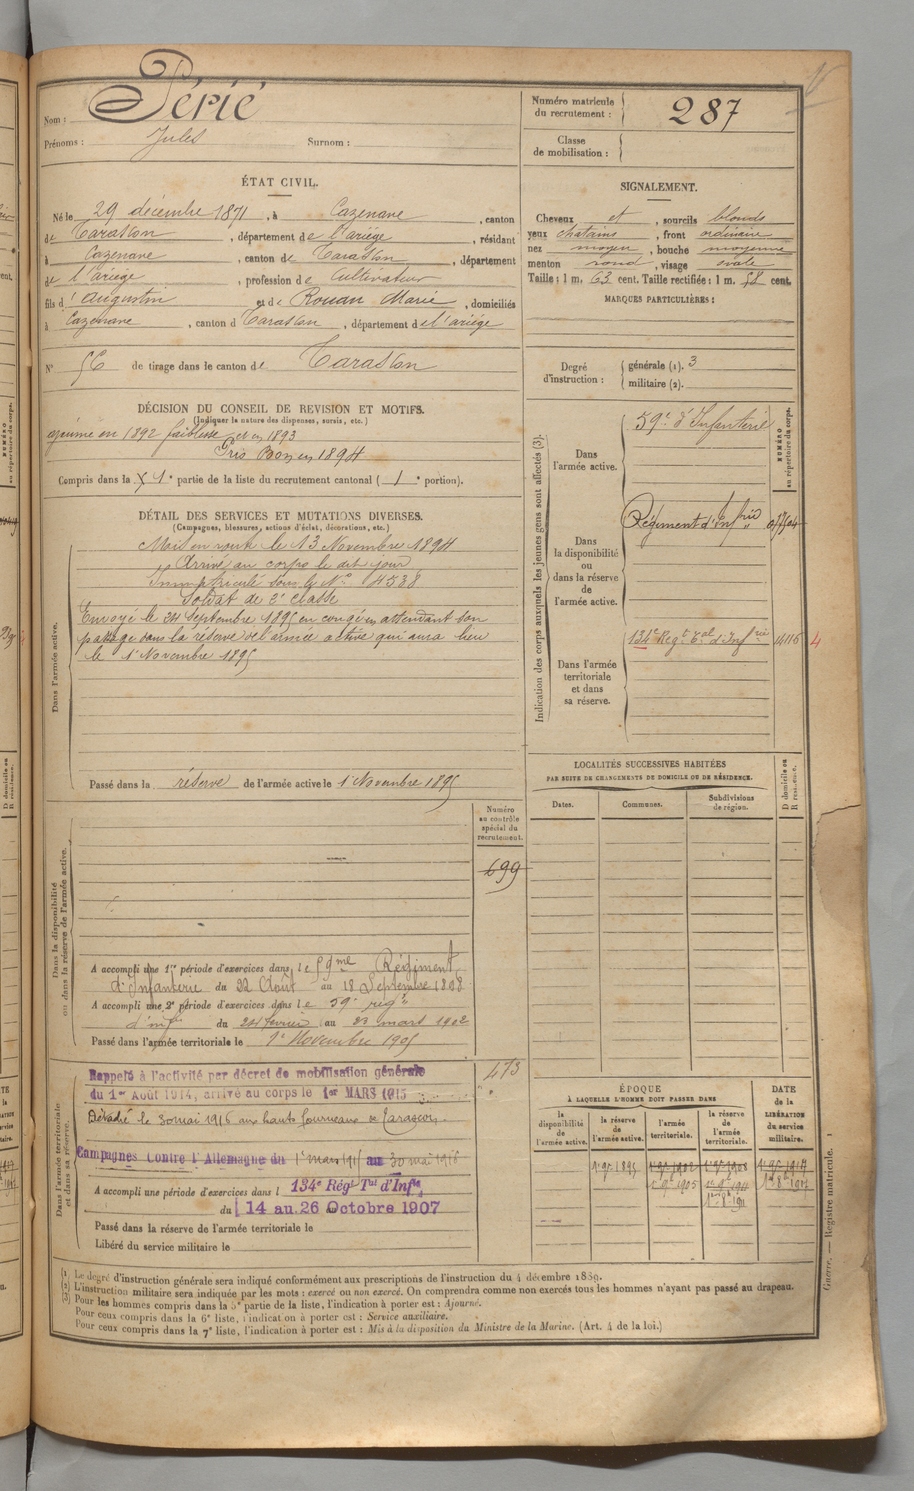 Nom : Périé
Prénoms : Jules Surnom :
Numéro matricule du recrutement : 287
Classe de mobilisation :
ÉTAT CIVIL.
Né le 29 décembre 1871, à Cazenave, canton
de Tarascon, département de l'ariége, résidant
à Cazenave, canton de Tarascon, département
de l'Ariége, profession de Cultivateur
fils d'Augustin et de Rouan Marie, domiciliés
à Cazenave, canton d Tarascon, département de l'ariége
N° 56 de tirage dans le canton de Tarascon
SIGNALEMENT.
Cheveux et, sourcils blonds
yeux chatains, front ordinaire
nez moyen, bouche moyenne
menton rond, visage ovale
Taille : 1 m. 63 cent. Taille rectifiée : 1 m. 58 cent.
MARQUES PARTICULIÈRES :
Degré d'instruction : générale (1). 3
militaire (2).
DÉCISION DU CONSEIL DE REVISION ET MOTIFS.
(Indiquer la nature des dispenses, sursis, etc.)
ajourné en 1892 faiblesse et en 1893
Pris Bon en 1894
Compris dans la 1e partie de la liste du recrutement cantonal (1 e portion).
DÉTAIL DES SERVICES ET MUTATIONS DIVERSES.
(Campagnes, blessures, actions d'éclat, décorations, etc.)
Dans l'armée active.
Mis en route le 13 Novembre 1894
Arrivé au corps le dit jour
Immatriculé sous le N° 4538
Soldat de 2e classe
Envoyé le 24 Septembre 1895 en congé en attendant son
passage dans la réserve de l'armée active qui aura lieu
le 1 Novembre 1895
Passé dans la réserve de l'armée active le 1 Novembre 1895
Indication des corps auxquels les jeunes gens sont affectés (3).
NUMÉRO au répertoire du corps.
Dans l'armée active.
59e d'Infanterie
Dans la disponibilité ou dans la réserve de l'armée active.
Régiment d'Inf
Dans l'armée territoriale et dans sa réserve.
134e Regt Tal d'Inf rie 4
LOCALITÉS SUCCESSIVES HABITÉES
PAR SUITE DE CHANGEMENTS DE DOMICILE OU DE RÉSIDENCE.
Dates. Communes. Subdivisions de région. D domicile ou R résidence.
Dans la disponibilité ou dans la réserve de l'armée active.
Numéro au contrôle spécial du recrutement.
699
A accompli une 1re période d'exercices dans le 59me Régiment
d'Infanterie du 22 Août au 18 Septembre 1898
A accompli une 2e période d'exercices dans le 59e régt
d'inf du 24 février au 23 mars 1902
Passé dans l'armée territoriale le 1e Novembre 1905
Dans l'armée territoriale et dans sa réserve.
473
Rappelé à l'activité par décret de mobilisation générale
du 1er Août 1914, arrivé au corps le 1er MARS 1915
Détaché le 30 mai 1916 aux hauts fourneaux de Tarascon.
Campagnes Contre l'Allemagne du 1e mars 1915 au 30 mai 1916
A accompli une période d'exercices dans l 134e Régt Tal d'Infie
du 14 au 26 Octobre 1907
Passé dans la réserve de l'armée territoriale le
Libéré du service militaire le
ÉPOQUE
À LAQUELLE L'HOMME DOIT PASSER DANS
la disponibilité de l'armée active. la réserve de l'armée active. l'armée territoriale. la réserve de l'armée territoriale.
DATE de la LIBÉRATION du service militaire.
(1) Le degré d'instruction générale sera indiqué conformément aux prescriptions de l'instruction du 4 décembre 1889.
(2) L'instruction militaire sera indiquée par les mots : exercé ou non exercé. On comprendra comme non exercés tous les hommes n'ayant pas passé au drapeau.
(3) Pour les hommes compris dans la 5e partie de la liste, l'indication à porter est : Ajourné.
Pour ceux compris dans la 6e liste, l'indication à porter est : Service auxiliaire.
Pour ceux compris dans la 7e liste, l'indication à porter est : Mis à la disposition du Ministre de la Marine. (Art. 4 de la loi.)
Guerre. — Registre matricule. 1